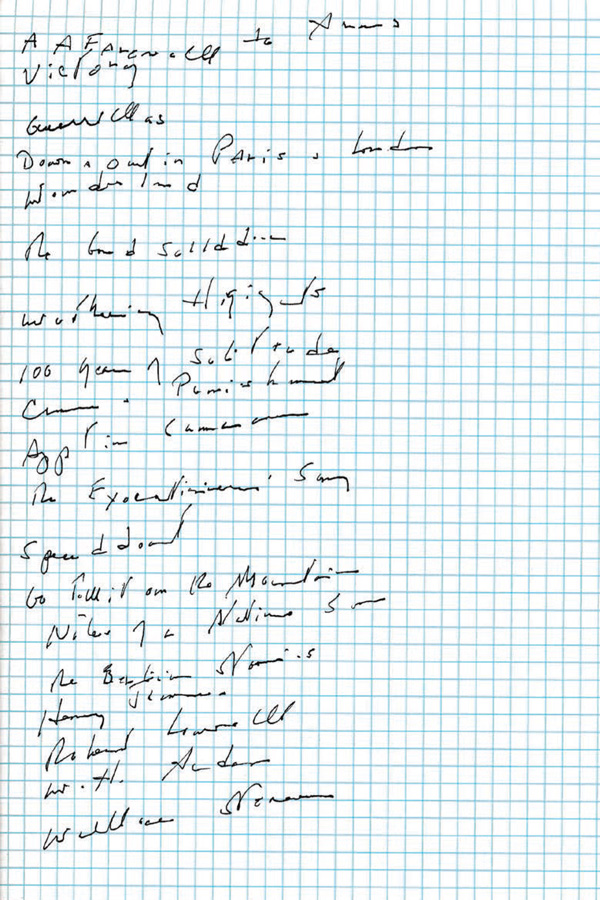 A A Farewell to Arms
Victory
Guerrillas
Down & out in Paris & London
Wonderland
The Good Soldier
Wuthering Heights
100 Years of Solitude
Crime & Punishment
App in
The Executioner's Song
Speedboat
Go Tell it on the Mountain
Notes of a Native Son
The Berlin Stories
Henry James
Robert Lowell
W. H. Auden
Wallace Stevens